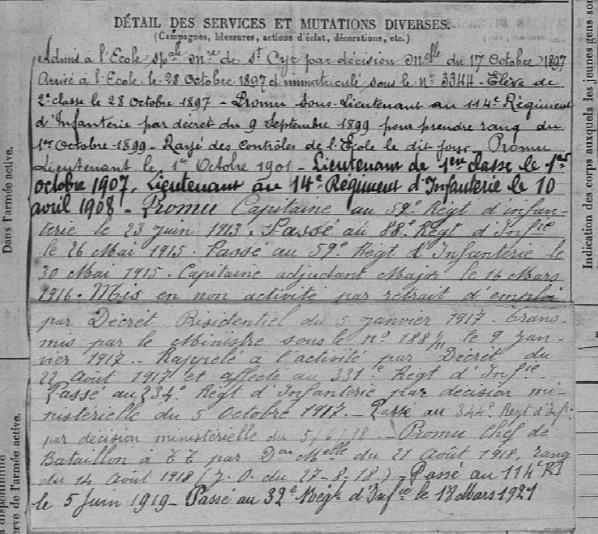 DÉTAIL DES SERVICES ET MUTATIONS DIVERSES.
(Campagnes, blessures, actions d'éclat, décorations, etc.)
Admis à l'Ecole Sp^ale M^re de S^t Cyr par décision M^elle du 17 Octobre 1897
Arrivé à l'Ecole le 28 Octobre 1897 et immatriculé sous le n° 3344 - Elève de
2^e classe le 28 Octobre 1897 - Promu Sous-Lieutenant au 114^e Régiment
d'Infanterie par décret du 9 Septembre 1899 pour prendre rang du
1^er Octobre 1899 - Rayé des Contrôles de l'Ecole le dit jour. Promu
Lieutenant le 1^er Octobre 1901 - Lieutenant de 1^ère classe le 1^er
octobre 1907. Lieutenant au 14^e Régiment d'Infanterie le 10
avril 1908 - Promu Capitaine au 59^e Régt d'infan-
terie le 23 juin 1913. Passé au 88^e Régt d'Inf^ie
le 26 Mai 1915. Passé au 59^e Régt d'Infanterie le
30 Mai 1915. Capitaine adjudant Major le 16 Mars
1916. Mis en non activité par retrait d'emploi
par Décret Présidentiel du 5 janvier 1917. Trans-
mis par le Ministre sous le n° 188 le 9 jan-
vier 1917. Rappelé à l'activité par Décret du
22 Août 1917 et affecté au 331^e Régt d'Inf^ie
Passé au 234^e Régt d'Infanterie par décision mi-
nistérielle du 5 Octobre 1917. Passé au 344^e Régt d'Inf^ie
par décision ministérielle du 5/6/18 - Promu Chef de
Bataillon à T.T. par D^on M^elle du 21 Août 1918, rang
du 14 Août 1918 (J.O. du 27-8-18) - Passé au 114^e RI
le 5 Juin 1919 - Passé au 32^e Rég^t d'Inf^ie le 18 Mars 1921
Dans l'armée active.
disponibilité
rve de l'armée active.
Indication des corps auxquels les jeunes gens so